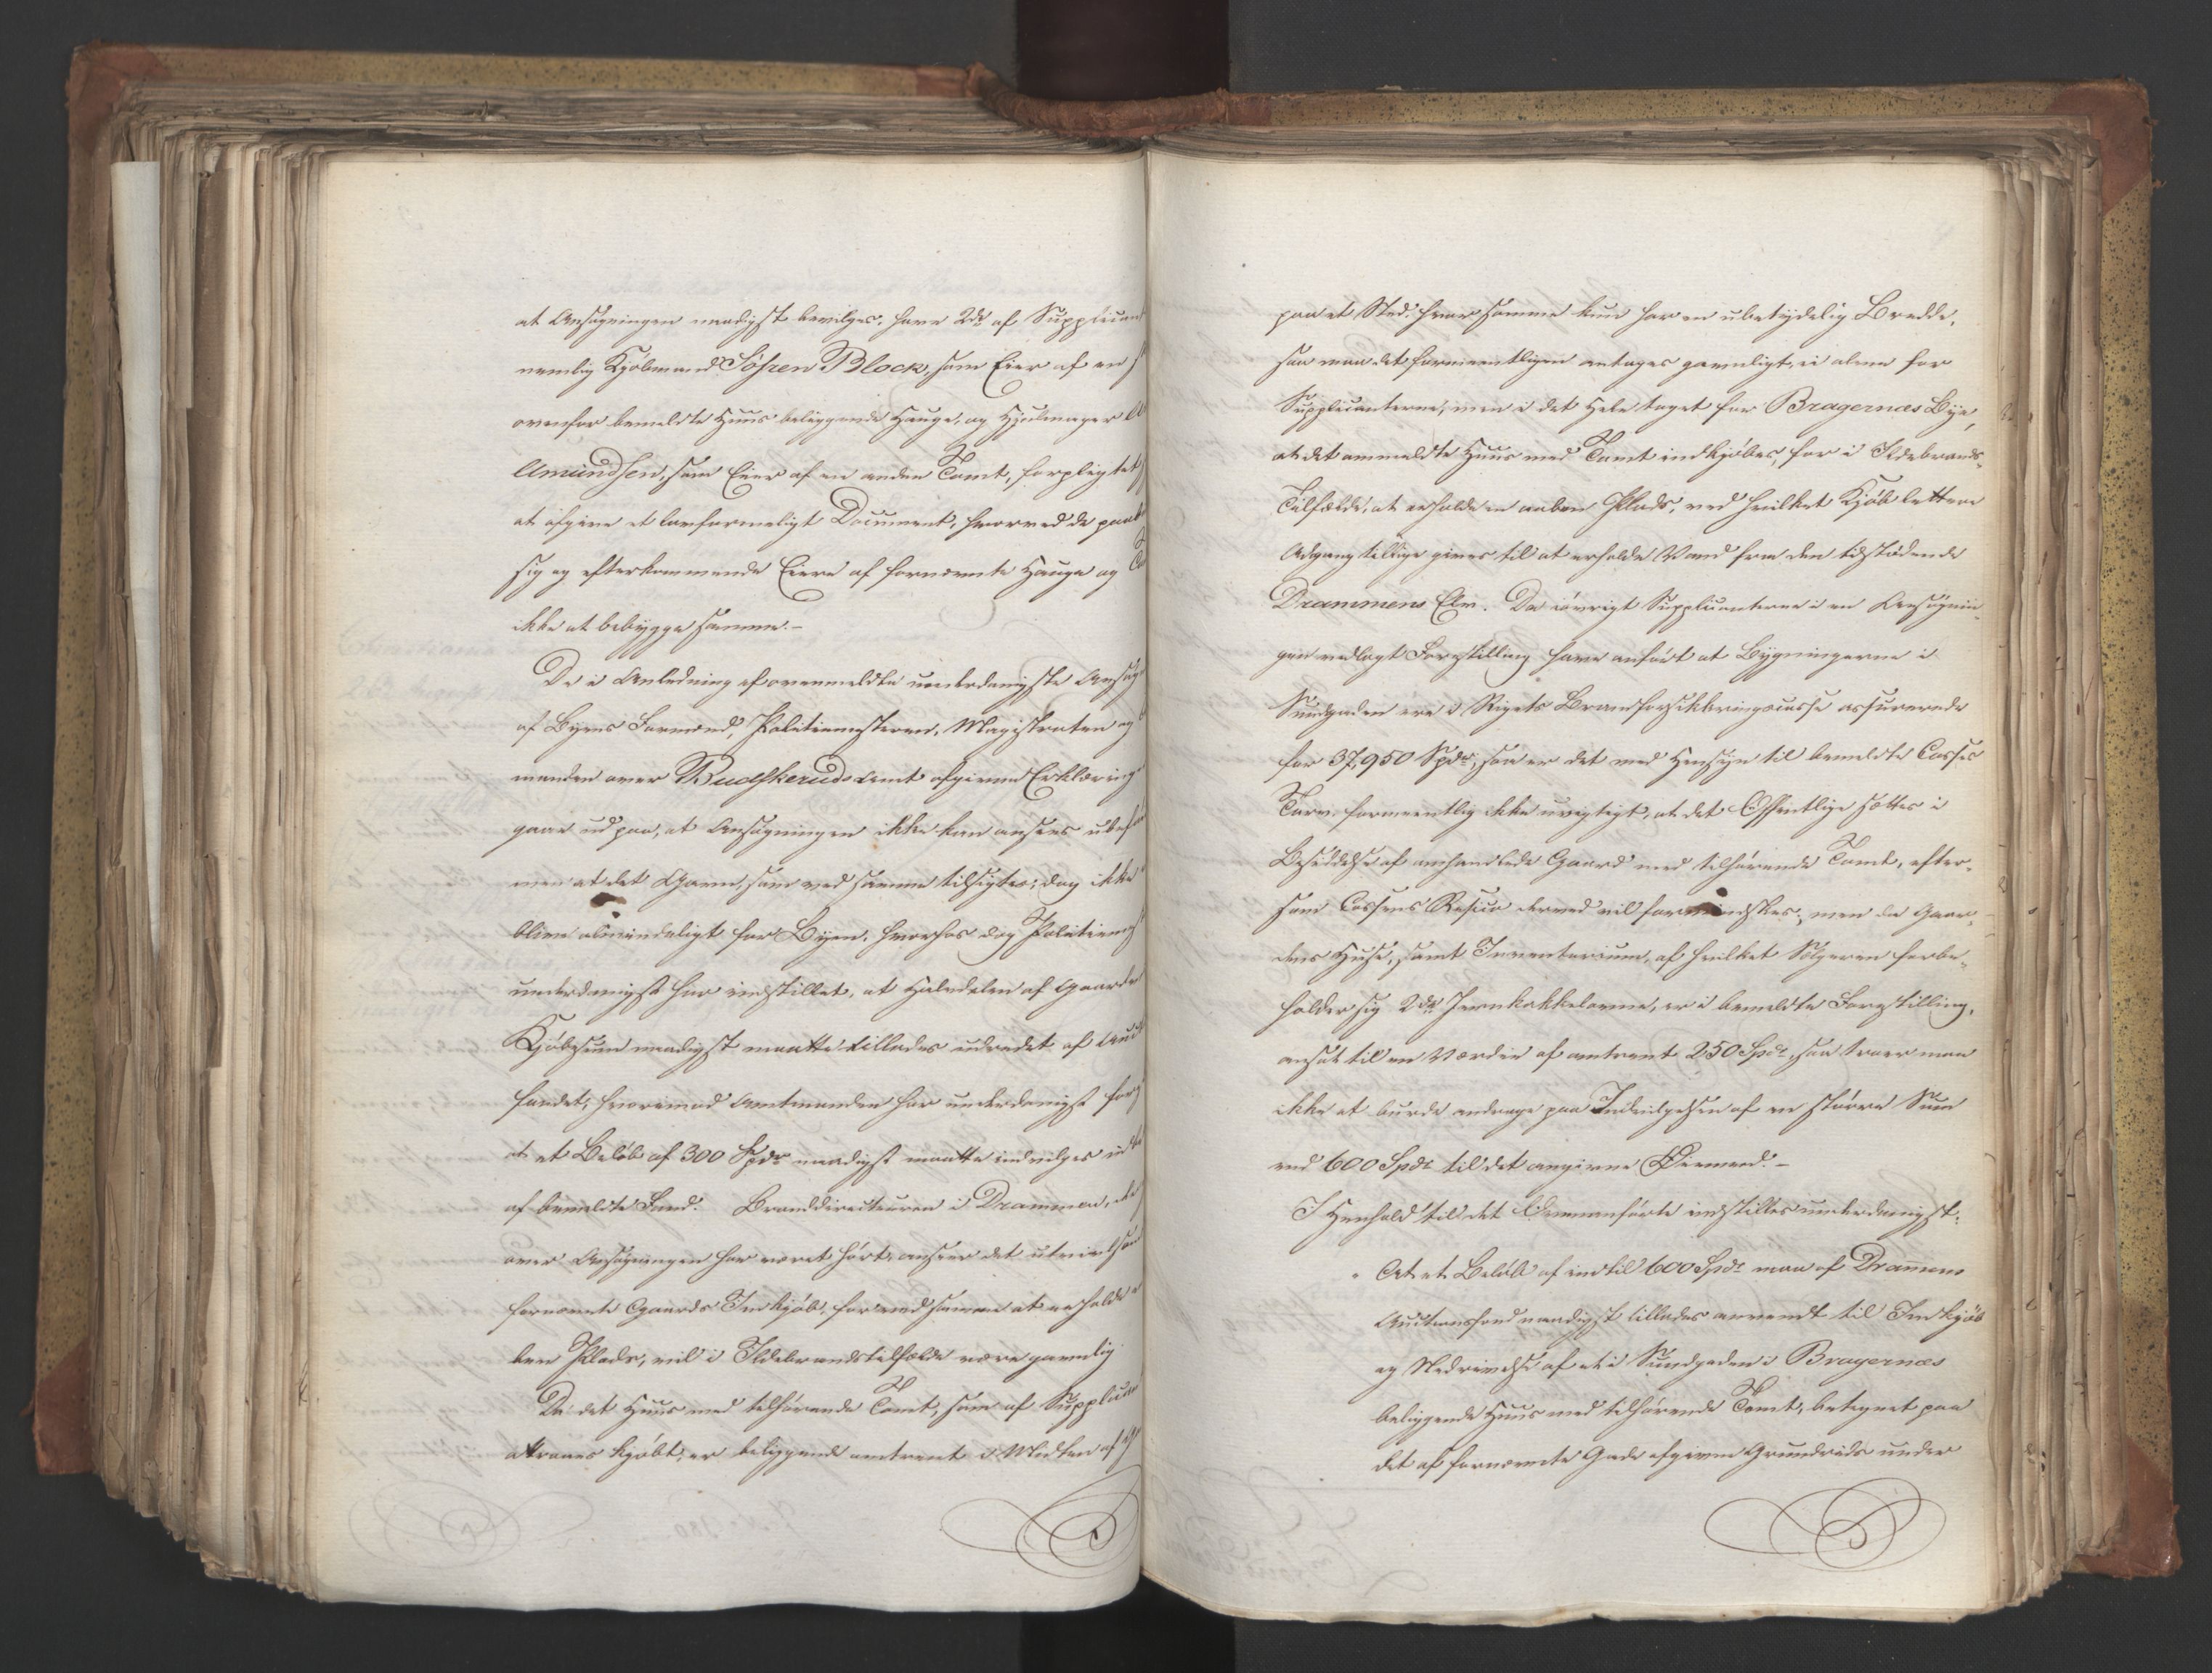 at Ansøgningen naadigst bevilges, have 2de af Supplicant
nemlig Kjøbmand Søhren Block, som Eier af en
ovenfor bemeldte Huus beliggende Hauge, og Hjulmager
Amundsen, som Eier af en anden Tomt, forpligtet
at afgive et lovformeligt Document, hvorved de paa
sig og efterkommende Eiere af fornævnte Hauge og
ikke at bebygge samme.-
De i Anledning af ovenmeldte underdanigste Ansøg
af Byens Formænd, Politiemesteren, Magistraten og
manden over Budskeruds Amt afgivne Erklæring
gaae ud paa, at Ansøgningen ikke kan ansees ubef
men at det Gavn, som ved samme tilsigtes, dog ikke
blive almindeligt for Byen, hvorhos dog Politiem
underdanigst har indstillet, at Halvdelen af Gaarde
Kjøbesum naadigst maatte tillades udredet af Auct
fondet, hvorimod Amtmanden har underdanigst for
at et Beløb af 300 Spdr naadigst maatte indvilges
af bemeldte Fond. Branddirecteuren i Drammen, der
over Ansøgningen har været hørt, anseer det utvivlsom
fornævnte Gaards Indkjøb, for ved samme at erholde
ben Plads, vil i Ildebrandstilfælde være gavnlig
Da det Huus med tilhørende Tomt, som af Supplican
attraaes kjøbt, er beliggende omtrent i Midten af
paa et Sted, hvor samme kun har en ubetydelig Bredde,
saa maa det formeentligen antages gavnligt, ei alene for
Supplicanterne, men i det Hele taget for Bragernæs Bye,
at det ommeldte Huus med Tomt indkjøbes, for i Ildebrands-
Tilfælde, at erholde en aaben Plads, ved hvilket Kjøb lettere
Adgang tillige gives til at erholde Vand fra den tilstødende
Drammens Elv. Da iøvrigt Supplicanterne i en Ansøgnin-
gen vedlagt Forestilling have anført at Bygningerne i
Sundgaden ere i Rigets Brandforsikkringscasse assurerede
for 37,950 Spdr, saa er det med Hensyn til bemeldte Casses
Tarv formeentlig ikke uvigtigt, at det Offentlige sættes i
Besiddelse af omhandlede Gaard med tilhørende Tomt, efter-
som Cassens Risico derved vil formindskes; men da Gaar-
dens Huse, samt Inventarium, af hvilket Sælgeren forbe-
holder sig 2de Jernkakkelovne, er i bemeldte Forestilling,
ansat til en Værdie af omtrent 250 Spdr, saa troer man
ikke at burde andrage paa Indvilgelsen af en større Sum
end 600 Spdr til det angivne Øiemed.-
I Henhold til det Ovenanførte indstilles underdanigst:
" At et Beløb af indtil 600 Spdr maa af Dram̄ens
Auctionsfond naadigst tillades anvendt til Indkjøb
og Nedrivelse af et i Sundgaden i Bragernæs
beliggende Huus med tilhørende Tomt, betegnet paa
det af fornævnte Gade afgivne Grundrids under